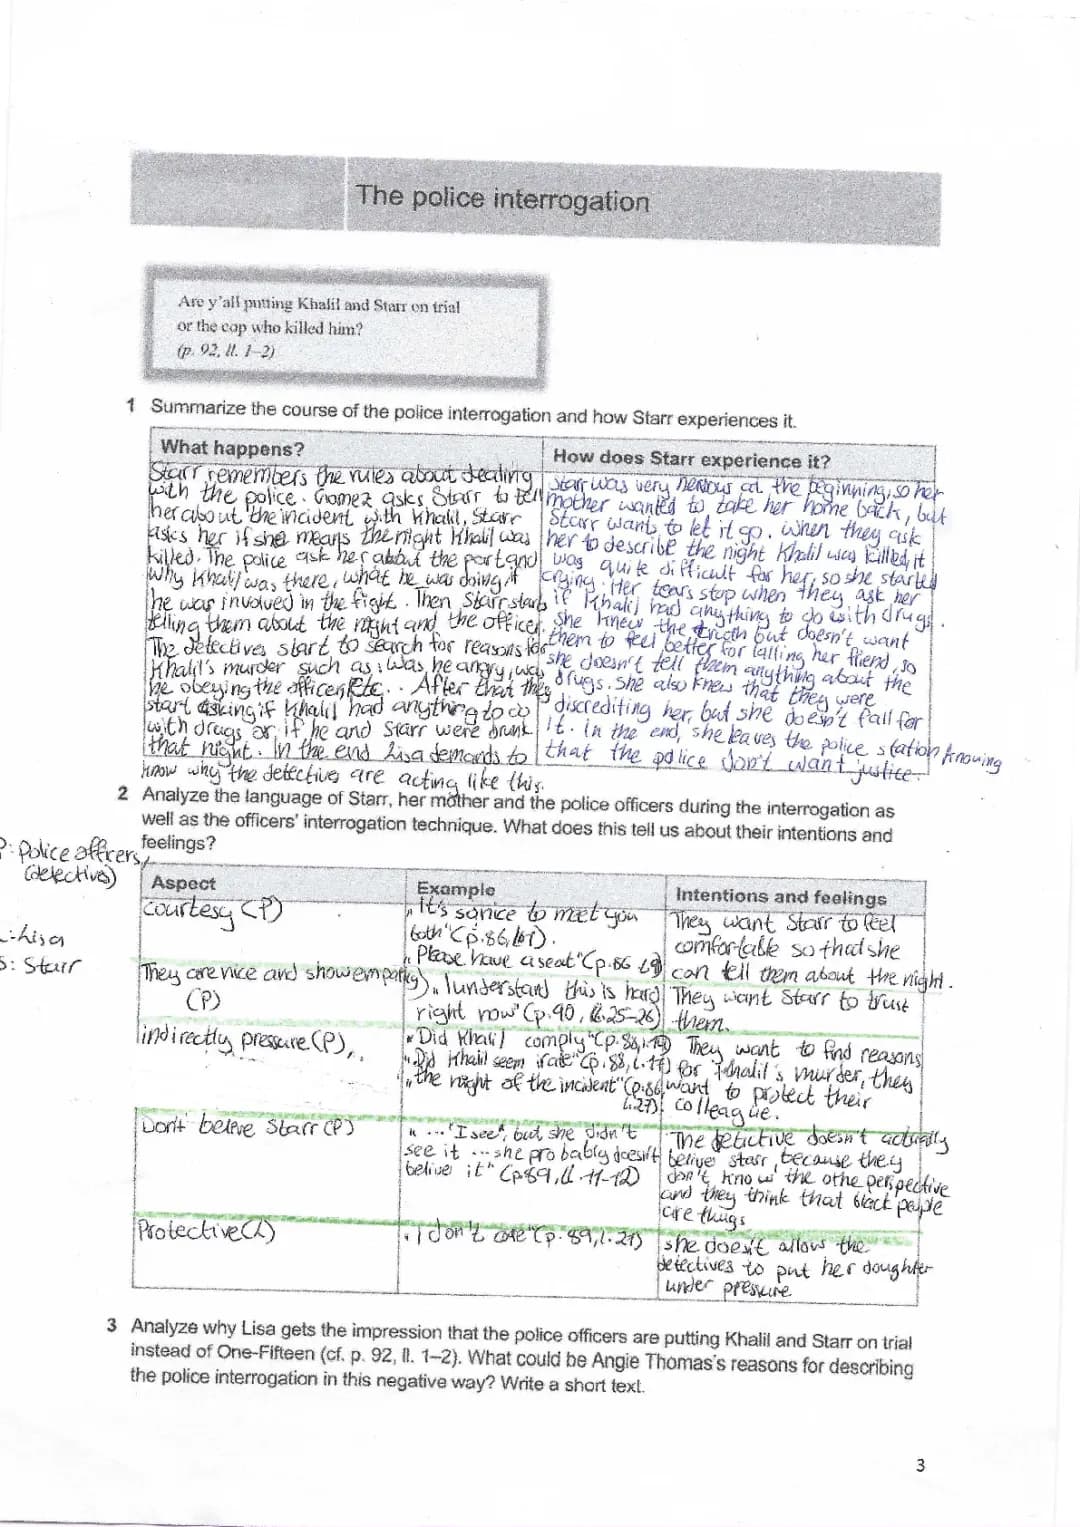 The police interrogation
Are y'all putting Khalil and Starr on trial
or the cop who killed him?
(p. 92, ll. 1–2)
1 Summarize the course of the police interrogation and how Starr experiences it.
What happens?
Starr remembers the rules about dealing
with the police. Gomez asks Starr to tell
her about the incident with Khalil, Starr
asks her if she means the night Khalil was
killed. The police ask her about the party and
why Khalil was there, what he was doing, if
he was involved in the fight. Then Starr starts
telling them about the night and the officer.
The detectives start to search for reasons for
Khalil's murder such as: was he angry, was
he obeying the officer, Etc.. After that they
start asking if Khalil had anything to do
with drugs or if he and Starr were drunk
that night. In the end Lisa demands to
know why the detectives are acting like this.
How does Starr experience it?
Starr was very nervous at the beginning, so her
mother wanted to take her home back, but
Starr wants to let it go. When they ask
her to describe the night Khalil was killed, it
was quite difficult for her, so she started
crying. Her tears stop when they ask her
if Khalil had anything to do with drugs.
She knew the truth but doesn't want
them to feel better for killing her friend, so
she doesn't tell them anything about the
drugs. She also knew that they were
discrediting her, but she doesn't fall for
it. In the end, she leaves the police station knowing
that the police don't want justice.
2 Analyze the language of Starr, her mother and the police officers during the interrogation as
well as the officers' interrogation technique. What does this tell us about their intentions and
feelings?
P: Police officers/
(detectives)
L: Lisa
S: Starr
Aspect
Example
Intentions and feelings
courtesy (P)
"It's so nice to meet you
both" (p.86,
"Please have a seat" (p.86
They want Starr to feel
comfortable so that she
can tell them about the night.
They are nice and show empathy
(P)
"I understand this is hard
right now" (p.90, ll.25-26)
They want Starr to trust
them.
indirectly pressure (P)
"Did Khalil comply" (p.88,
"Did Khalil seem irate" (p.88, l.17)
"the night of the incident" (p.86,
l.27)
They want to find reasons
for Khalil's murder, they
want to protect their
colleague.
Don't beleve Starr (P)
"... 'I see', but she didn't
see it ... she probably doesn't
belive it" (p.89, ll. 11-12)
The detictive doesn't actually
belive starr, because they
don't know the othe perspective
and they think that black people
are thugs
Protective (L)
"I don't care" (p.89, l.21)
she does't allows the
detectives to put her doughter
under pressure
3 Analyze why Lisa gets the impression that the police officers are putting Khalil and Starr on trial
instead of One-Fifteen (cf. p. 92, ll. 1–2). What could be Angie Thomas's reasons for describing
the police interrogation in this negative way? Write a short text.
3